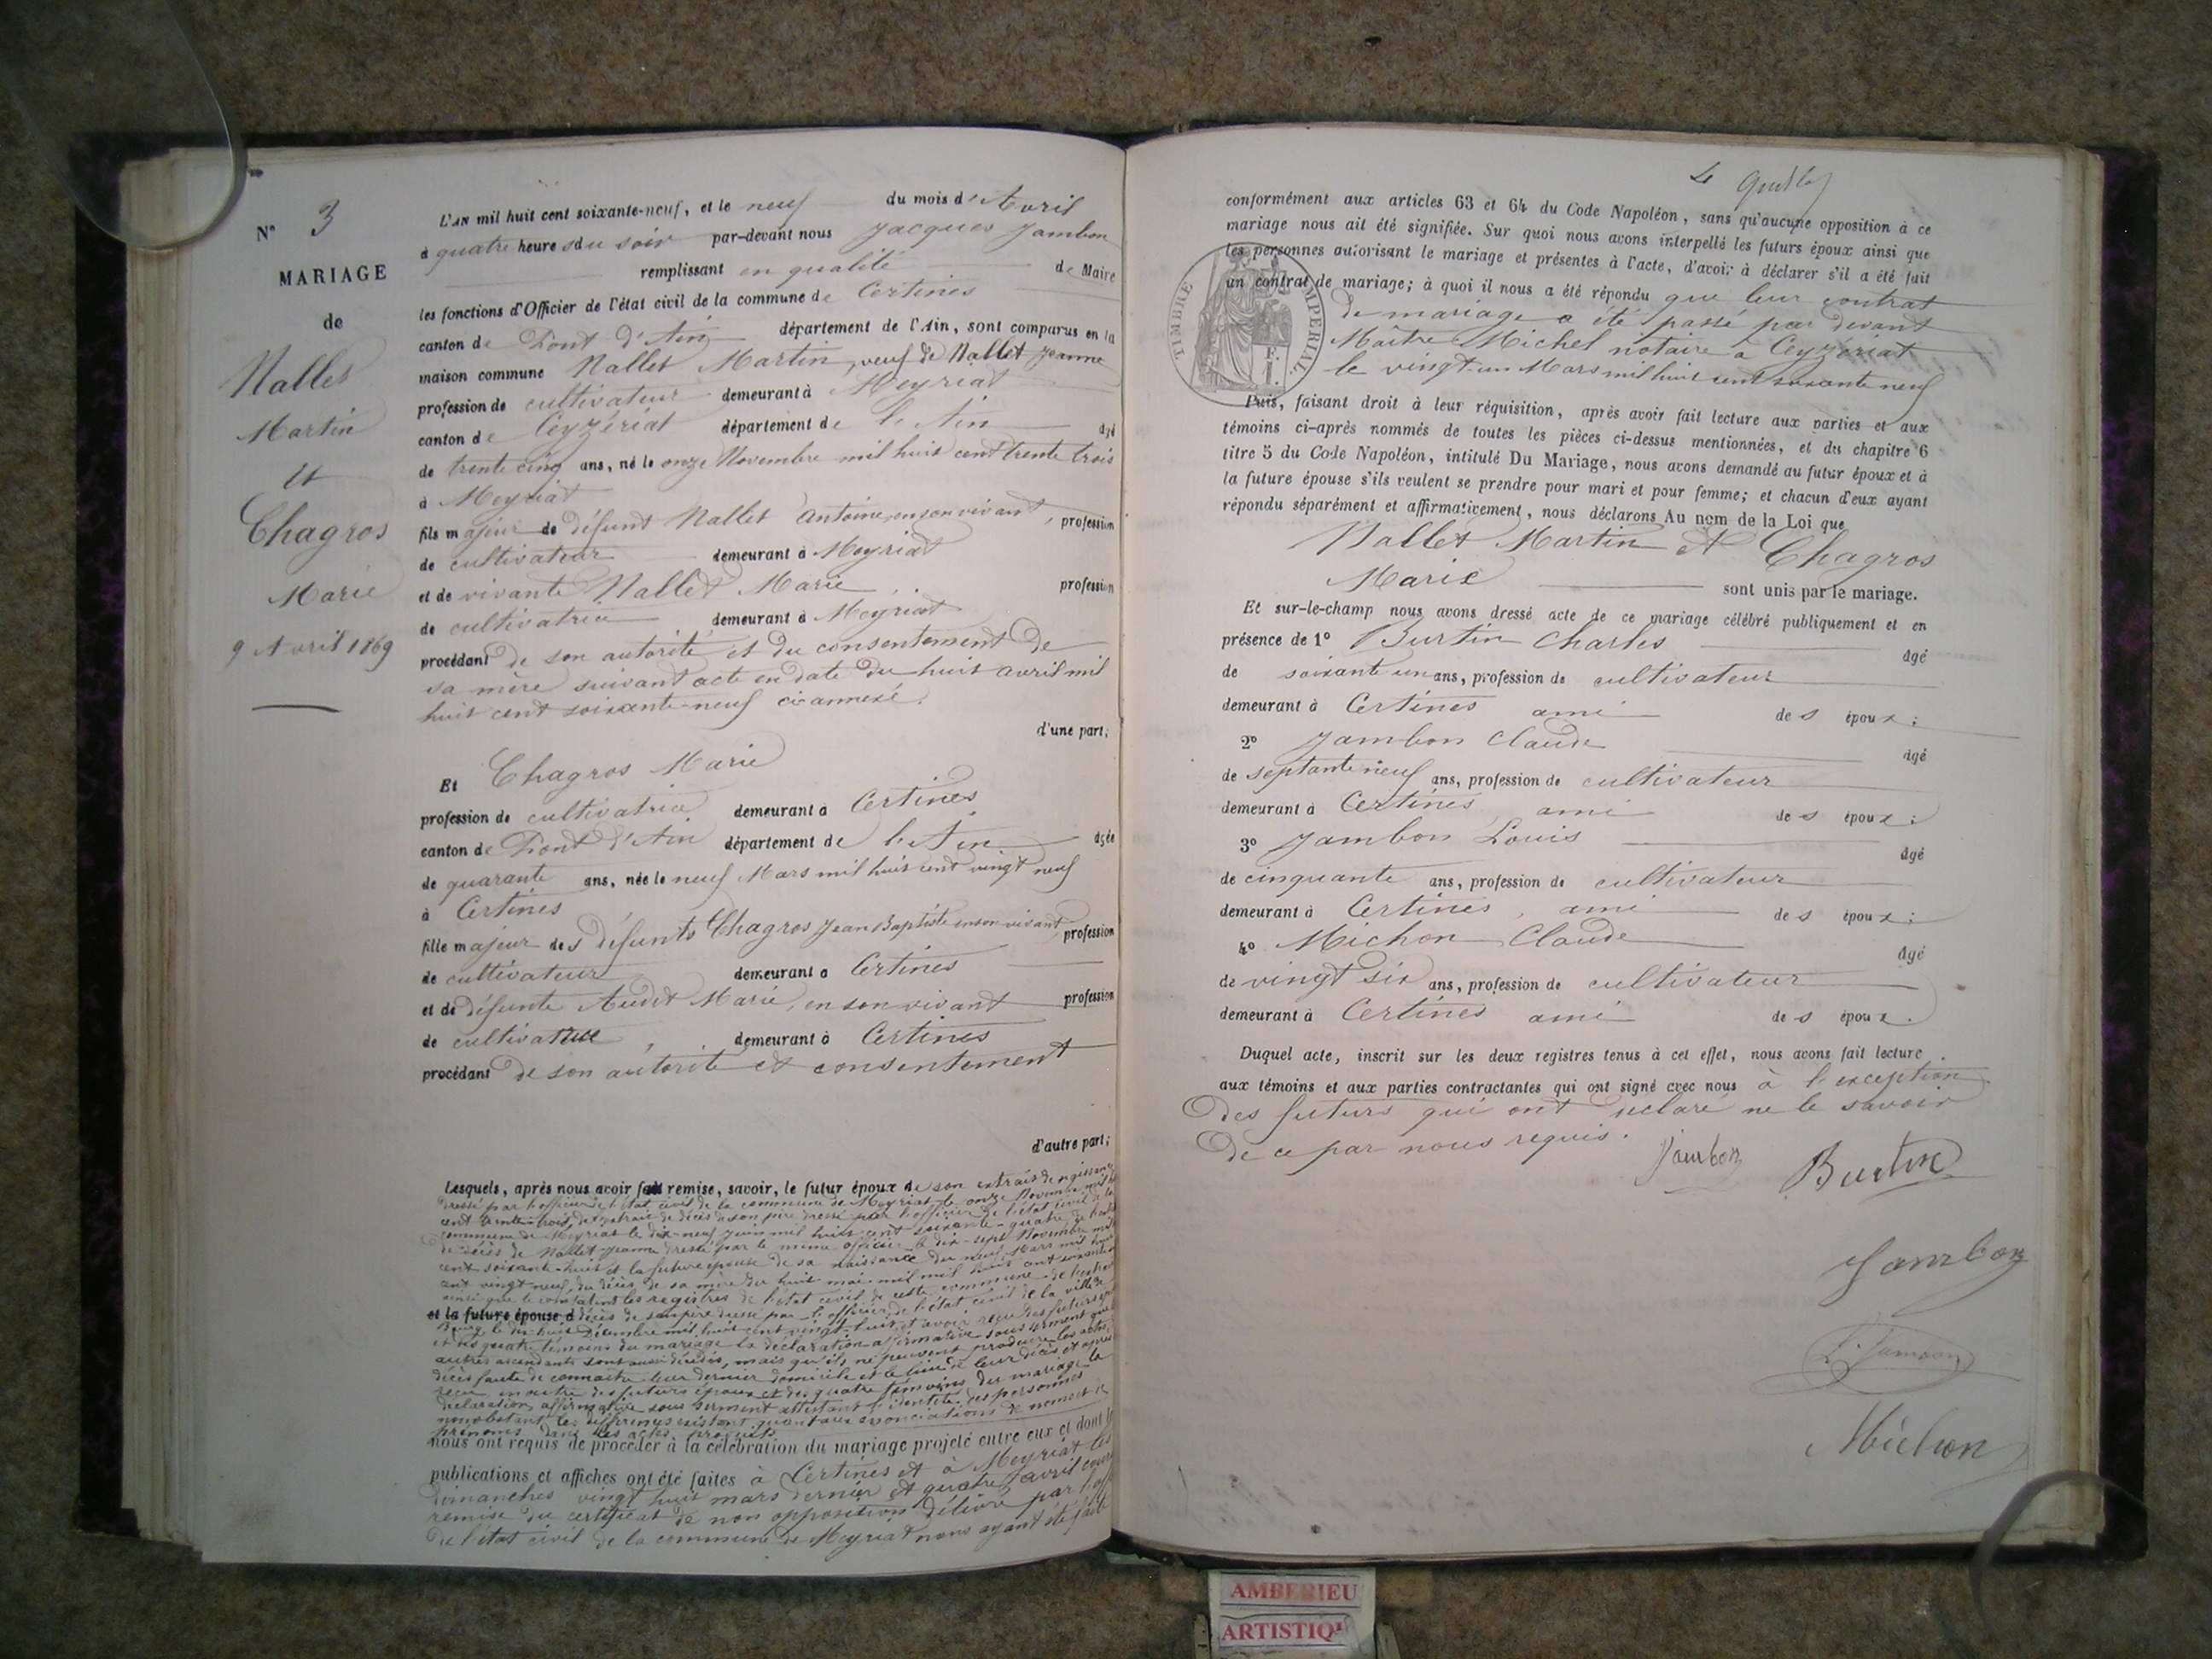 N° 3
MARIAGE
de
Nallet
Martin
et
Chagros
Marie
9 Avril 1869
L'AN mil huit cent soixante-neuf, et le neuf du mois d'Avril
à quatre heures du soir par-devant nous Jacques Jambon
remplissant en qualité de Maire
les fonctions d'Officier de l'état civil de la commune de Certines
canton de Pont d'Ain département de l'Ain, sont comparus en la
maison commune Nallet Martin, veuf de Nallet Jeanne
profession de cultivateur demeurant à Meyriat
canton de Ceyzériat département de l'Ain âgé
de trente cinq ans, né le onze Novembre mil huit cent trente trois
à Meyriat
fils majeur de défunt Nallet Antoine, en son vivant, profession
de cultivateur demeurant à Meyriat
et de vivante Nallet Marie profession
de cultivatrice demeurant à Meyriat
procédant de son autorité et du consentement de
sa mère suivant acte en date du huit avril mil
huit cent soixante-neuf ci-annexé.
d'une part;
Et Chagros Marie
profession de cultivatrice demeurant à Certines
canton de Pont d'Ain département de l'Ain âgée
de quarante ans, née le neuf Mars mil huit cent vingt neuf
à Certines
fille majeur des défunts Chagros Jean Baptiste en son vivant, profession
de cultivateur demeurant à Certines
et de défunte Audet Marie, en son vivant profession
de cultivatrice, demeurant à Certines
procédant de son autorité et consentement
d'autre part;
Lesquels, après nous avoir fait remise, savoir, le futur époux de son extrait de naissance
dressé par l'officier de l'état civil de la commune de Meyriat le onze Novembre mil huit
cent trente-trois, de l'extrait de décès de son père dressé par l'officier de l'état civil de la
commune de Meyriat le dix-neuf juin mil huit cent soixante-quatre, de l'acte
de décès de Nallet Jeanne dressé par le même officier le dix-sept Novembre mil huit
cent soixante-huit et la future épouse de sa naissance du neuf Mars mil huit
cent vingt neuf, du décès de sa mère du huit mai mil mil huit cent soixante
ainsi que le constatent les registres de l'état civil de cette commune, de l'extrait
et la future épouse d décès de son père dressé par l'officier de l'état civil de la ville de
Bourg le dix huit Décembre mil huit cent vingt huit et avoir reçu des futurs époux
et des quatre témoins du mariage la déclaration affirmative sous serment que les
autres ascendants sont aussi décédés, mais qu'ils ne peuvent produire les actes de
décès faute de connaître leur dernier domicile et le lieu de leur décès, et après
reçu en outre des futurs époux et des quatre témoins du mariage la
déclaration affirmative sous serment attestant l'identité des personnes
nonobstant les différences existant quant aux énonciations de noms et
prénoms dans les actes produits
nous ont requis de procéder à la célébration du mariage projeté entre eux et dont les
publications et affiches ont été faites à Certines et à Meyriat les
dimanches vingt huit mars dernier et quatre avril courant
remise du certificat de non opposition délivré par l'officier
de l'état civil de la commune de Meyriat nous ayant été faite
conformément aux articles 63 et 64 du Code Napoléon, sans qu'aucune opposition à ce
mariage nous ait été signifiée. Sur quoi nous avons interpellé les futurs époux ainsi que
les personnes autorisant le mariage et présentes à l'acte, d'avoir à déclarer s'il a été fait
un contrat de mariage; à quoi il nous a été répondu que leur contrat
de mariage a été passé par devant
Maître Michel notaire à Ceyzériat
le vingt-un Mars mil huit cent soixante neuf
TIMBRE IMPERIAL
Puis, faisant droit à leur réquisition, après avoir fait lecture aux parties et aux
témoins ci-après nommés de toutes les pièces ci-dessus mentionnées, et du chapitre 6
titre 5 du Code Napoléon, intitulé Du Mariage, nous avons demandé au futur époux et à
la future épouse s'ils veulent se prendre pour mari et pour femme; et chacun d'eux ayant
répondu séparément et affirmativement, nous déclarons Au nom de la Loi que
Nallet Martin et Chagros
Marie sont unis par le mariage.
Et sur-le-champ nous avons dressé acte de ce mariage célébré publiquement et en
présence de 1° Burtin Charles âgé
de soixante un ans, profession de cultivateur
demeurant à Certines ami des époux;
2° Jambon Claude âgé
de septante neuf ans, profession de cultivateur
demeurant à Certines, ami des époux;
3° Jambon Louis âgé
de cinquante ans, profession de cultivateur
demeurant à Certines, ami des époux;
4° Michon Claude âgé
de vingt six ans, profession de cultivateur
demeurant à Certines ami des époux.
Duquel acte, inscrit sur les deux registres tenus à cet effet, nous avons fait lecture
aux témoins et aux parties contractantes qui ont signé avec nous à l'exception
des futurs qui ont déclaré ne le savoir
de ce par nous requis.
Jambon Burtin
Jambon
L. Jambon
Michon
AMBERIEU
ARTISTIQ